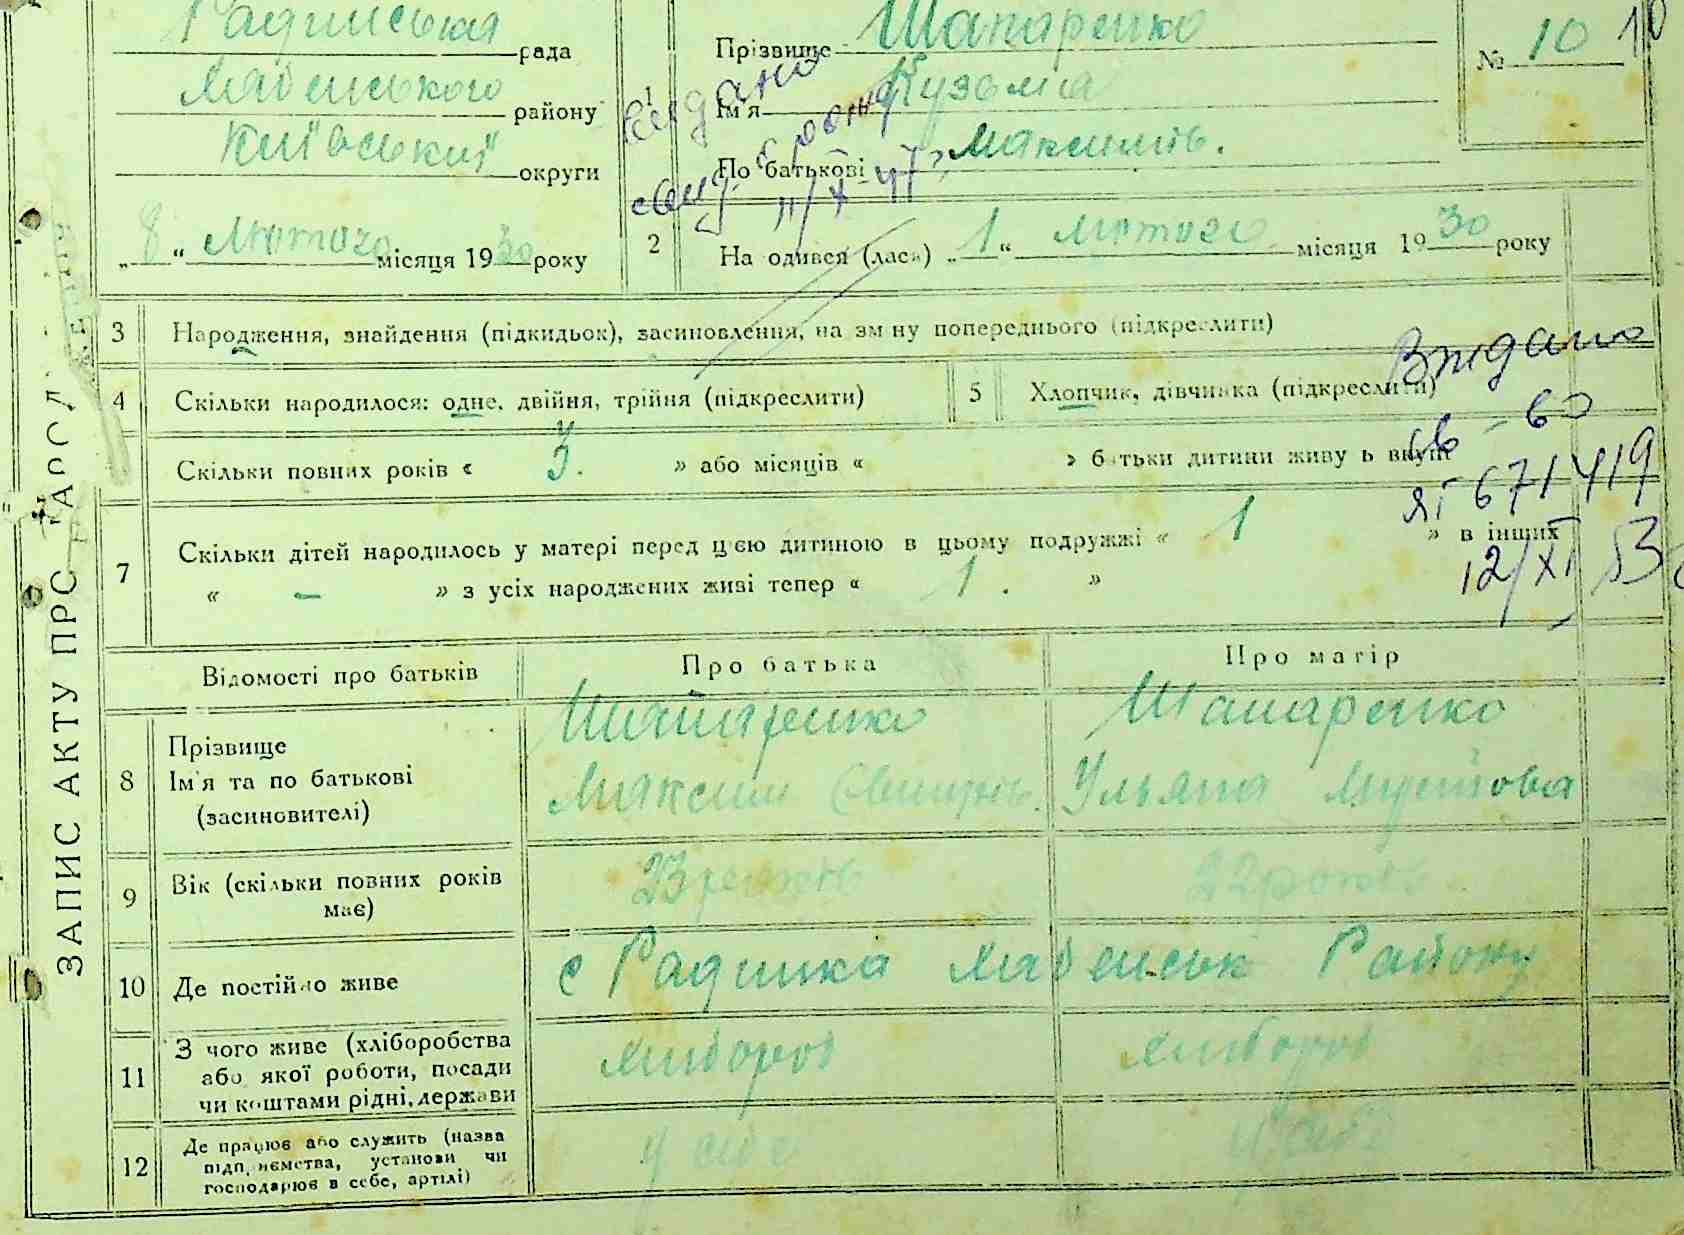 Радинська рада
району
Київської округи
„8“ Лютого місяця 1930 року
ЗАПИС АКТУ ПРО НАРОД
1
Прізвище Шапаренко
Ім'я Кузьма
По батькові Максимів.
№ 10 10
Видано
11/X 47
2
На одився (лася) „1“ лютого місяця 1930 року
3 Народження, знайдення (підкидьок), засиновлення, на зм ну попереднього (підкреслити)
Видано
4 Скільки народилося: одне, двійня, трійня (підкреслити)
5 Хлопчик, дівчинка (підкреслити)
Скільки повних років « 3. » або місяців « » батьки дитини живу ь вкупі
св - 60
ЯГ 671419
12/XI 53
7 Скільки дітей народилось у матері перед цією дитиною в цьому подружжі « 1 » в інших
« – » з усіх народжених живі тепер « 1. »
Відомості про батьків Про батька Про матір
8 Прізвище
Ім'я та по батькові
(засиновителі)
Шапаренко
Максим
Шапаренко
Ульяна
9 Вік (скільки повних років
має)
23 років
22 років
10 Де постійно живе
с Радинка Району
11 З чого живе (хліборобства
або якої роботи, посади
чи коштами рідні, держави
хлібороб
хлібороб
12 Де працює або служить (назва
підприємства, установи чи
господарює в себе, артілі)
у себе
у себе